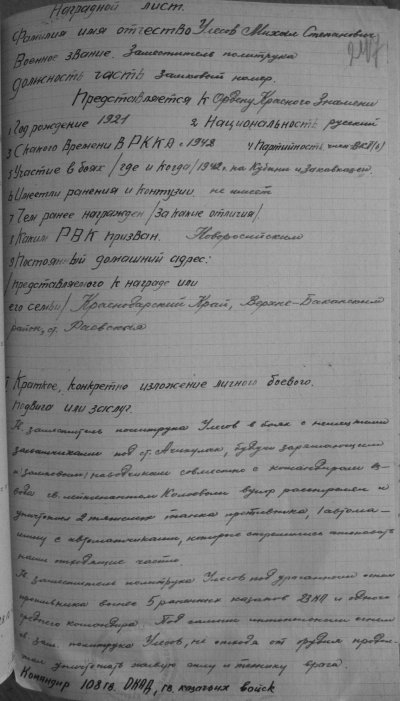 Наградной лист.
Фамилия имя отчество Улесов Михаил Степанович
Военное звание. Заместитель политрука
Должность часть замковый номер.
Представляется к Ордену Красного Знамени
1 Год рождение 1921 2 Национальность русский
3 С какого времени В РККА с 1942 4 Партийность член ВКП(б)
5 Участие в боях /где и когда/ 1942 г. на Кубани и Закавказьем
6 Имеет ли ранения и контузии не имеет
7 Чем ранее награжден /за какие отличия/.
8 Каким РВК призван. Новоросийским
9 Постоянный домашний адрес:
/представляемого к награде или
его семьи/ Краснодарский Край, Верхне-Баканский
район, ст. Раевская
Краткое, конкретно изложение личного боевого.
подвига или заслуг.
заместитель политрука Улесов в боях с немецкими
захватчиками под ст. Ачикулак, будучи заряжающим
и замковым, наводчиком совместно с командиром вз-
вода гв. лейтенантом в упор расстрелял и
уничтожил 2 тяжелых танка противника, 1 автома-
шину с автоматчиками, которые стремились атаковать
наши отходящие части
заместитель политрука Улесов под ураганным огнем
противника вынес 5 раненых казаков и одного
среднего командира. Под самым интенсивным огнем
зам. политрука Улесов, не отходя от орудия продол-
жал уничтожать живую силу и технику врага.
Командир 108 гв. ОКАД, гв. казачьих войск